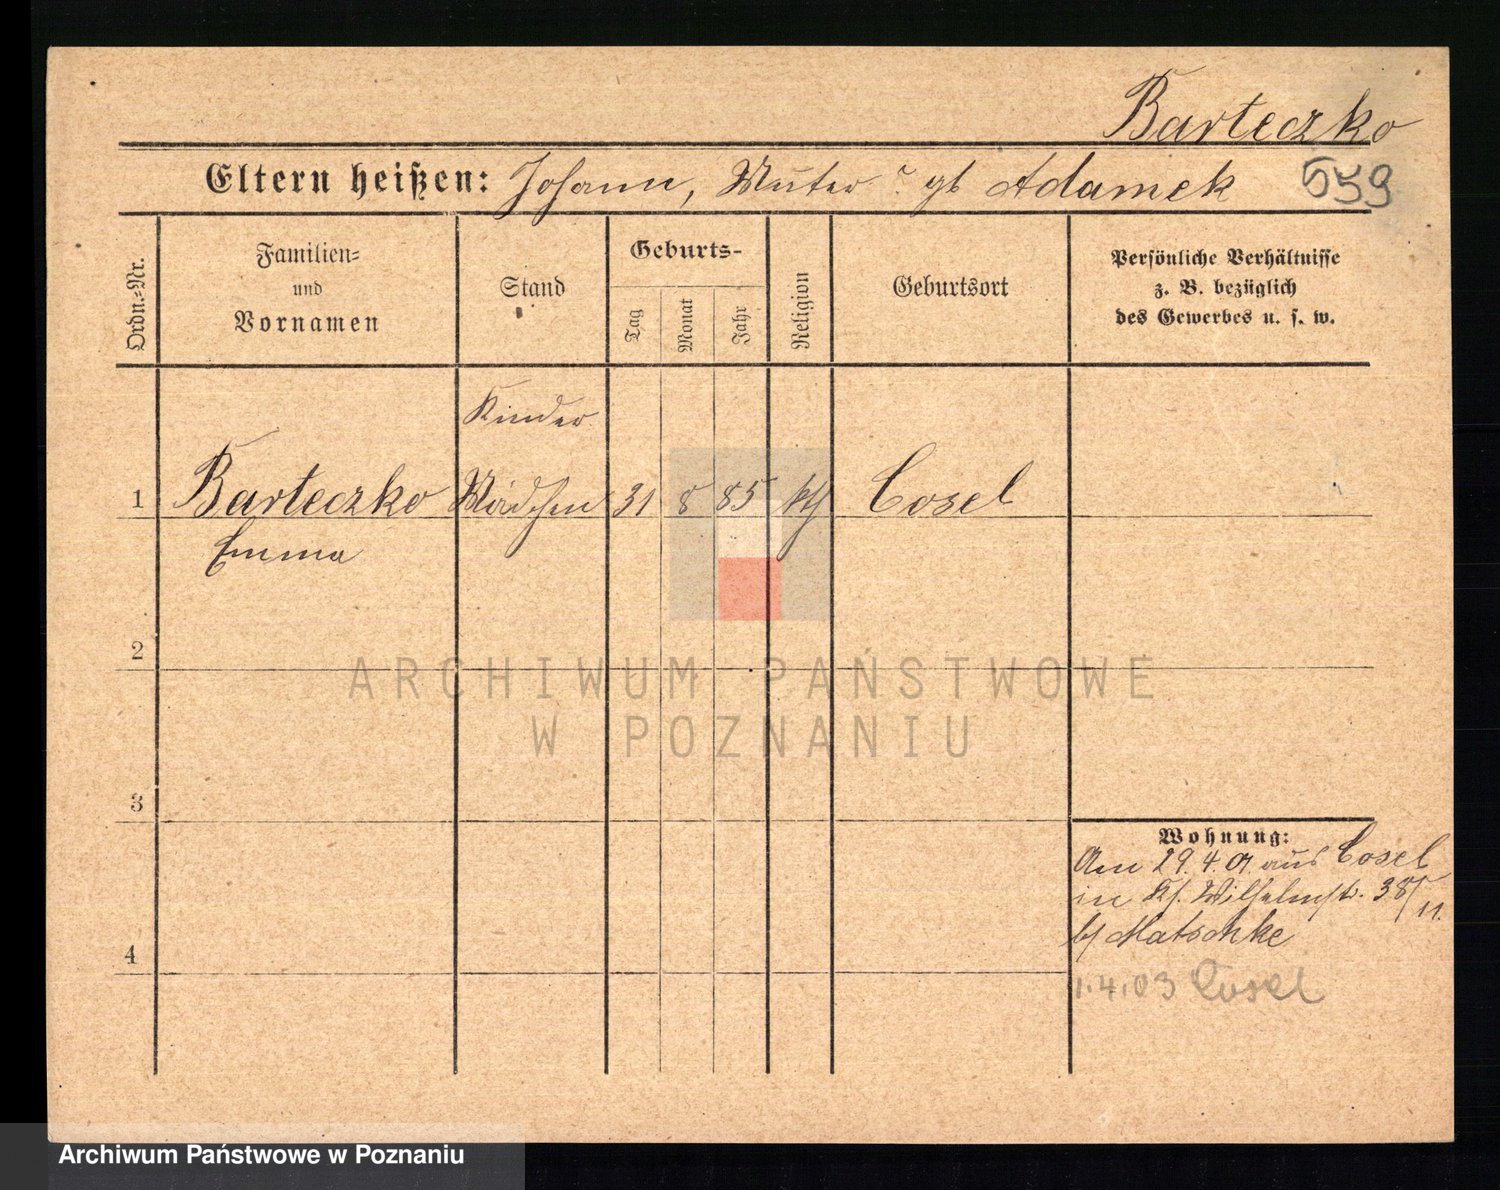 Barteczko
Eltern heißen: Johann, Mutter gb Adamek 559
Ordn.-Nr.
Familien-
und
Vornamen
Stand
Geburts-
Tag
Monat
Jahr
Religion
Geburtsort
Persönliche Verhältnisse
z. B. bezüglich
des Gewerbes u. s. w.
Kinder
1 Barteczko Mädchen 31 8 85 kth Cosel
Emma
2
ARCHIWUM PAŃSTWOWE
W POZNANIU
3
Wohnung:
Am 29.4.01 aus Cosel
in Kl. Wilhelmstr. 38/11.
b/ Matschke
4
1.4.03 Cosel
Archiwum Państwowe w Poznaniu